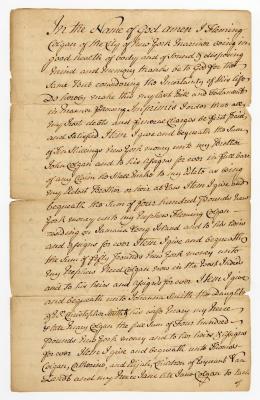 In the Name of God amen I Fleming
Colgan of the City of New York Mariner being in
good health of body and of Sound & disposing
mind and memory thanks be to God for the
same but considering the Uncertainty of this life
Do hereby make this my last Will and Testament
in manner following Imprimis I order that all
my Just debts and funeral Charges be first paid
and Satisfied Item I give and bequeath the Sum
of Ten Shillings New York money unto my Brother
John Colgan and to his assigns for ever in full barr
of any Claim he shall make to my Estate as being
my Eldest Brother or heir at Law Item I give and
bequeath the Sum of four hundred pounds New
York money unto my Nephew Fleming Colgan
residing on Jamaica Long Island and to his heirs
and assigns for ever Item I give and bequeath
the Sum of Fifty pounds New York money unto
my Nephew Reed Colgan now in the West Indies
and to his heirs and assigns for ever Item I give
and bequeath unto Johanna Smith the daughter
of Christopher Smith his wife Mary my Niece
Mary Colgan the full Sum of Four hundred
pounds New York money and to her heirs & assigns
for ever Item I give and bequeath unto Thomas
Colgan, Catherine, and Elijah, Children of
and my Niece Jane late Jane Colgan to each
of